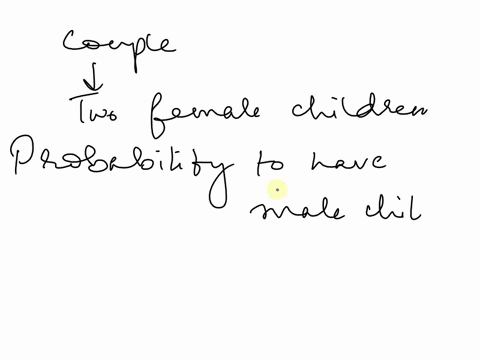 Couple
Two female children
Probability to have
male chil